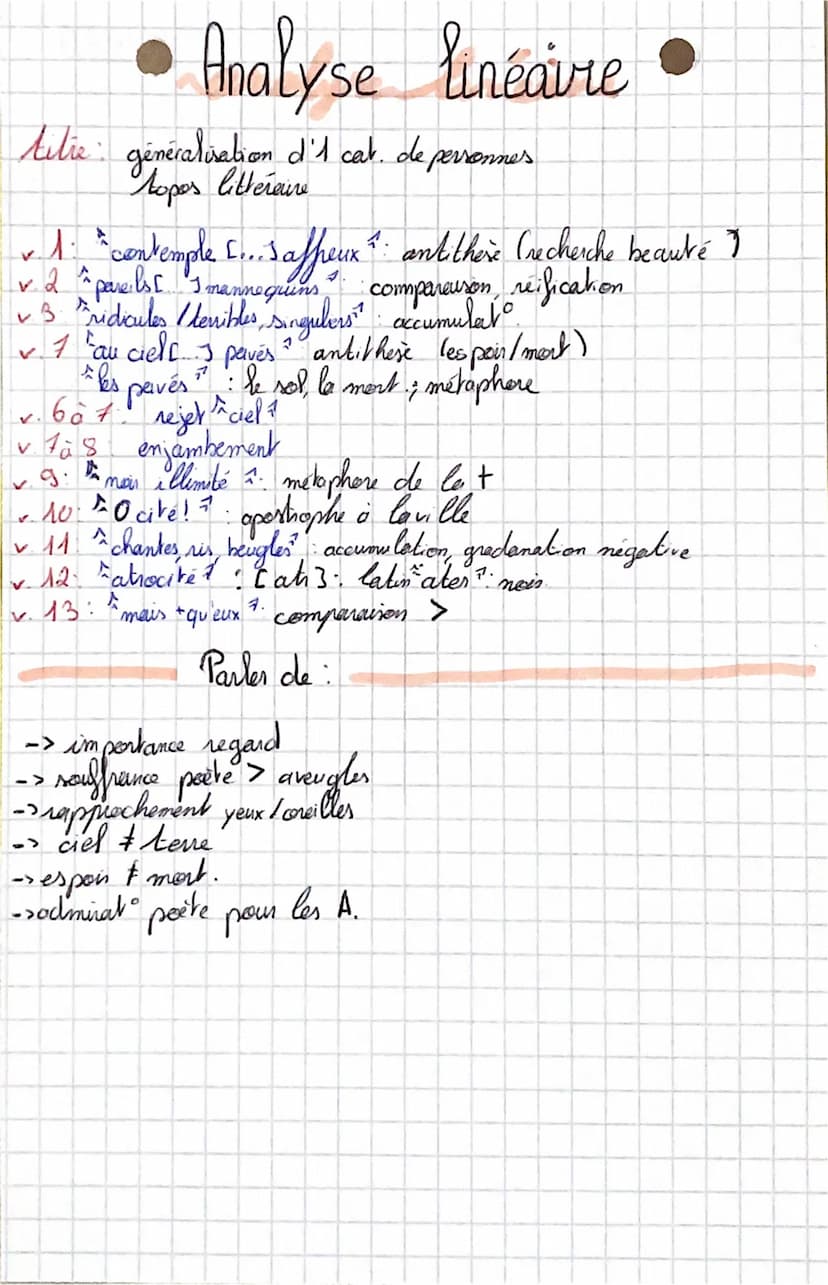 Analyse linéaire
titre : généralisation d'1 cat. de personnes
topos littéraire
v. 1 : "contemple [...] affreux" : antithèse (recherche beauté)
v. 2 "pareils [...] mannequins" : comparaison, réification
v 3 "ridicules / terribles, singuliers" : accumulat°
v. 7 "au ciel [...] pavés" antithèse (espoir/mort)
"les pavés" : le sol, la mort ; métaphore
v. 6 à 7 : rejet "ciel"
v. 7 à 8 : enjambement
v. 9 : "noir illimité" : métaphore de la +
v. 10 : "O cité !" : apostrophe à la ville
v. 11 "chantes, ris, beugles" : accumulation, gradanation négative
v. 12 : "atrocité" : [atr] : latin "ater" : noir
v. 13 : "mais + qu'eux" : comparaison >
Parler de :
-> importance regard
-> souffrance poète > aveugles
-> rapprochement yeux / oreilles
-> ciel ≠ terre
-> espoir ≠ mort.
-> admirat° poète pour les A.